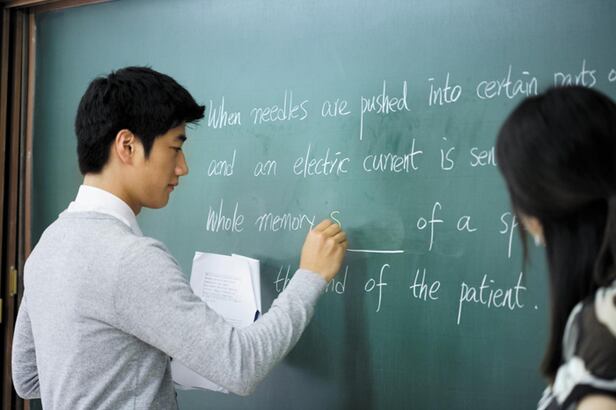 When needles are pushed into certain parts o
and an electric current is sen
Whole memory s of a sp
of the patient.